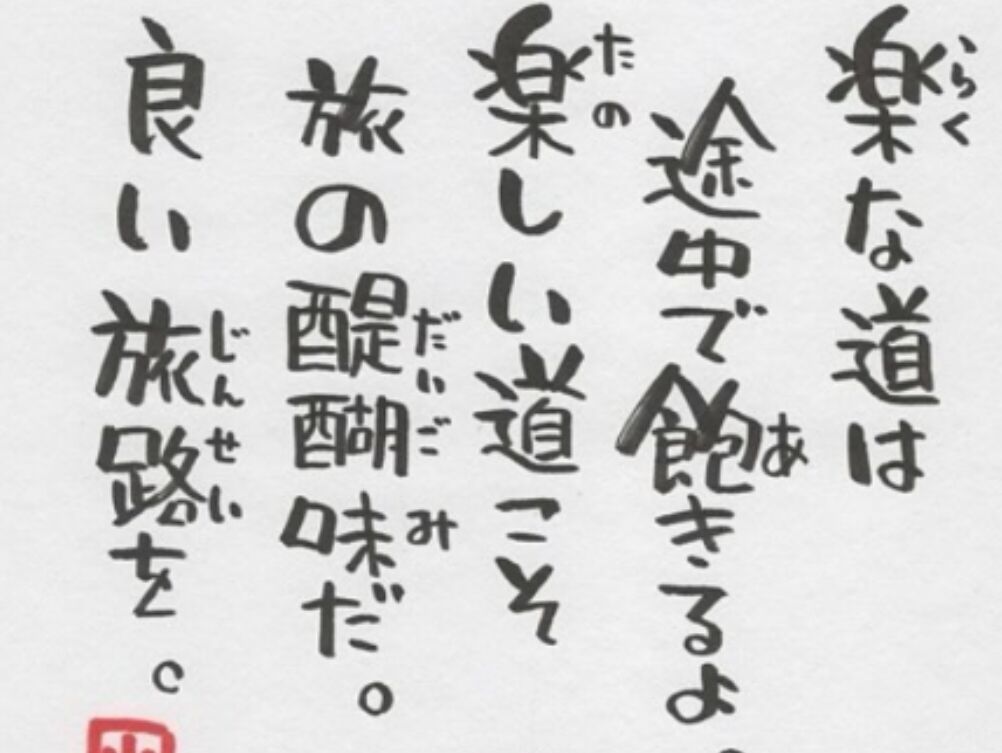 楽な道は
途中で飽きるよ。
楽しい道こそ
旅の醍醐味だ。
良い旅路を。